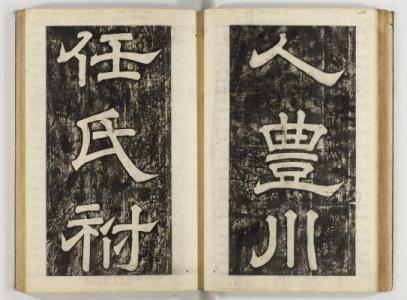 人豊川
任氏祔